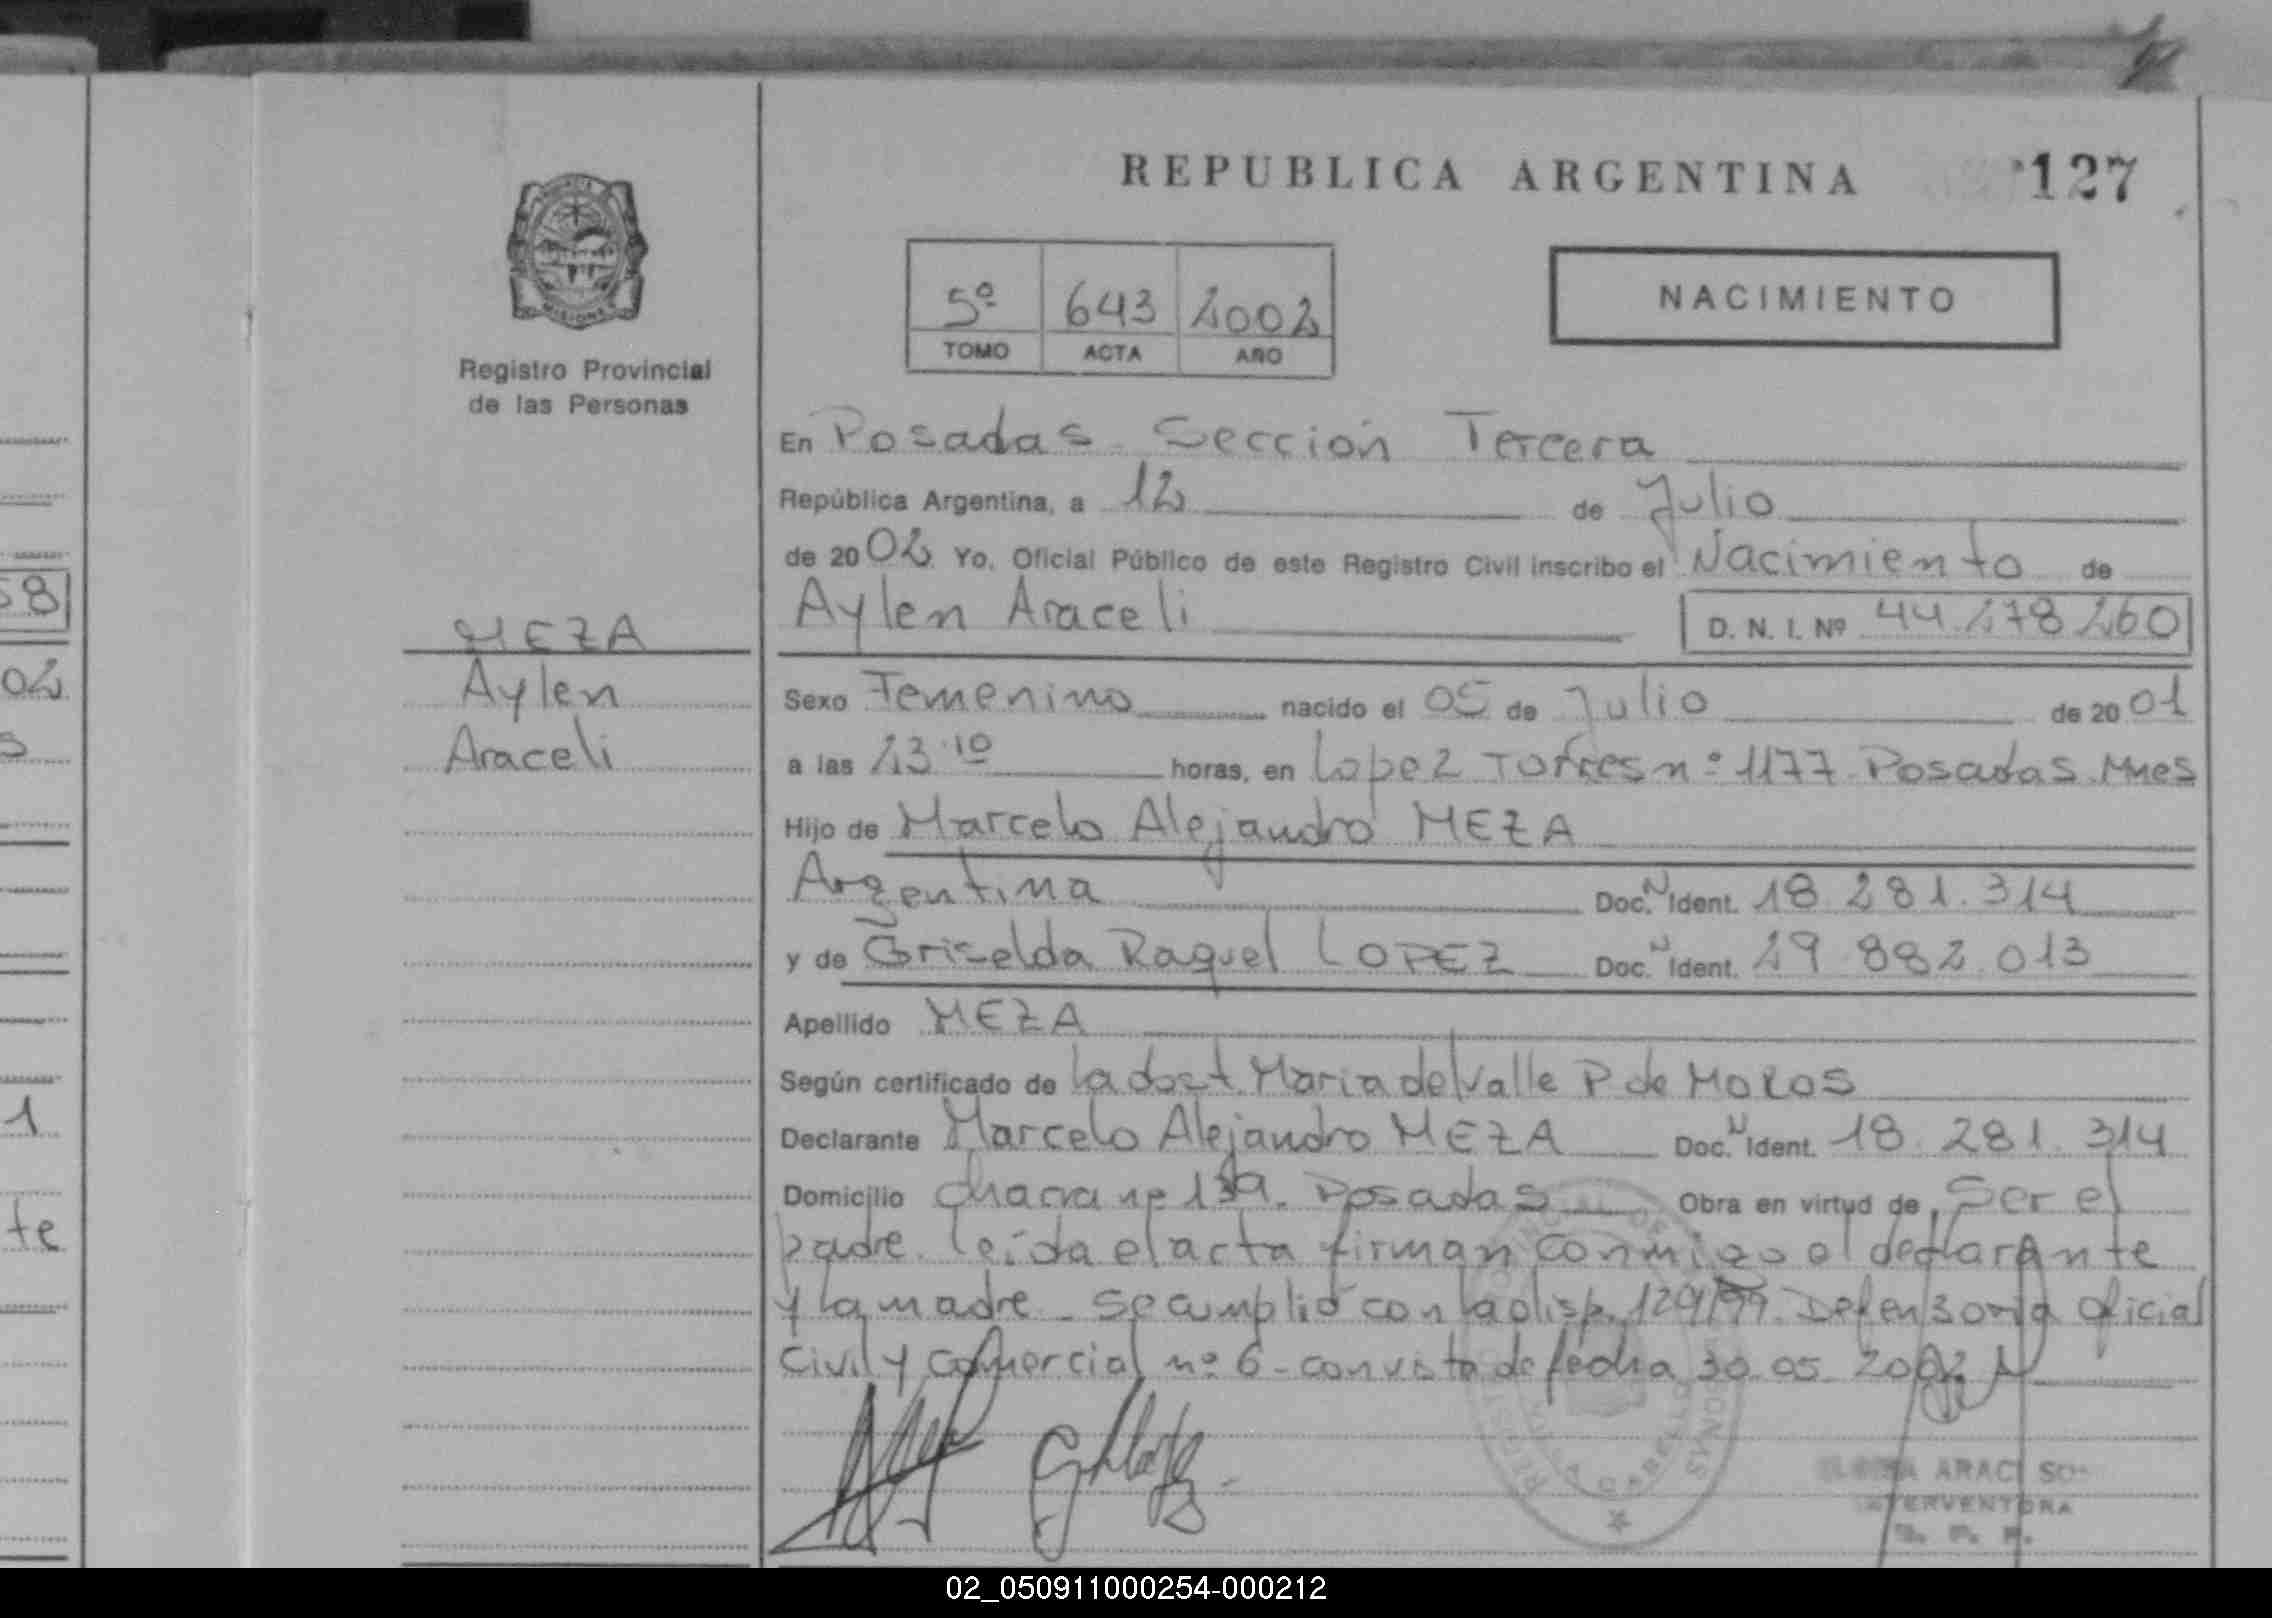 REPUBLICA ARGENTINA
127
5º 643 2002
TOMO ACTA AÑO
NACIMIENTO
MISIONES
Registro Provincial
de las Personas
MEZA
Aylen
Araceli
58
02
s
1
te
En Posadas Sección Tercera
República Argentina, a 12 de Julio
de 2002 Yo. Oficial Público de este Registro Civil inscribo el Nacimiento de
Aylen Araceli D. N. I. Nº 44.278.260
Sexo Femenino nacido el 05 de Julio de 2001
a las 23.10 horas, en Lopez Torres nº 1177 Posadas Mnes
Hijo de Marcelo Alejandro MEZA
Argentina Doc. N Ident. 18.281.314
y de Griselda Raquel LOPEZ Doc. N Ident. 29.882.013
Apellido MEZA
Según certificado de la doct Maria del Valle P de MOROS
Declarante Marcelo Alejandro MEZA Doc. N Ident. 18.281.314
Domicilio chacra nº Posadas Obra en virtud de Ser el
padre. leída el acta firman conmigo el declarante
y la madre. Se cumplió con la disp. 129/99. Defensoria oficial
Civil y Comercial nº 6 - con vista de fecha 30.05.2002
ARACI
INTERVENTORA
R. P. P.
02_050911000254-000212